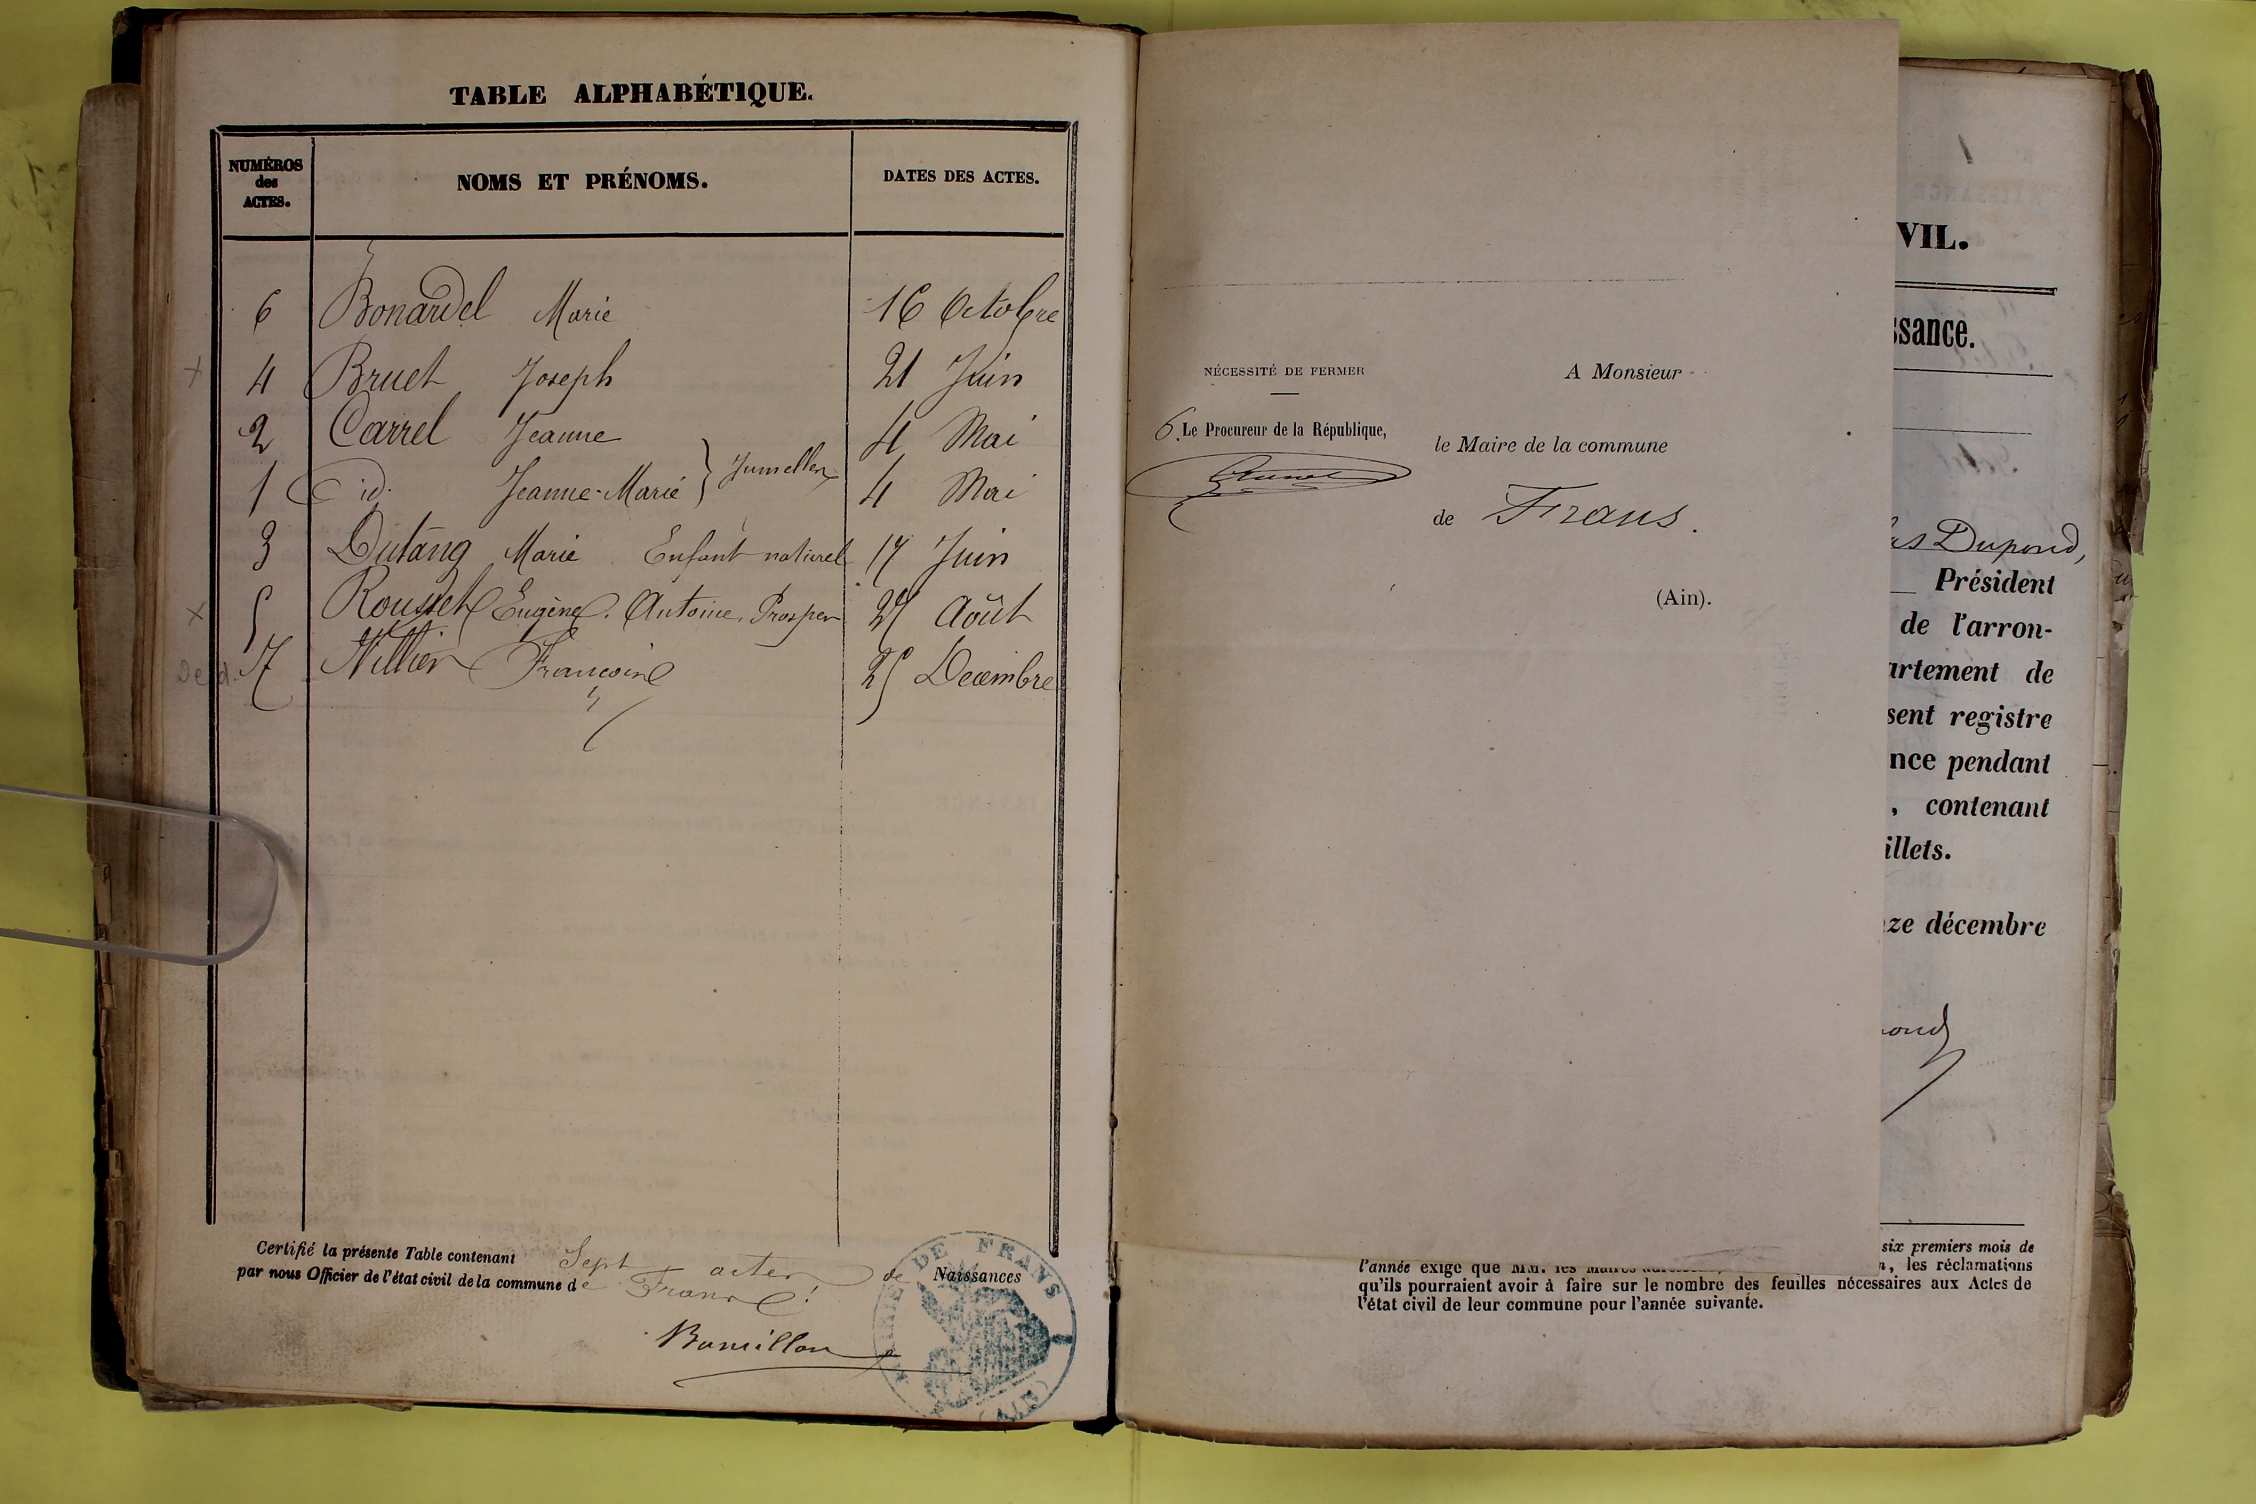 TABLE ALPHABÉTIQUE.
NUMÉROS des ACTES. NOMS ET PRÉNOMS. DATES DES ACTES.
6 Bonardel Marie 16 Octobre
4 Bruet Joseph 21 Juin
2 Carrel Jeanne 4 Mai
1 id. Jeanne-Marie } Jumelles 4 Mai
3 Dutang Marie Enfant naturel 17 Juin
5 Rousset Eugène Antoine Prosper 27 Août
7 Villier François 25 Decembre
Certifié la présente Table contenant Sept actes de Naissances
par nous Officier de l'état civil de la commune de Frans
MAIRIE DE FRANS (AIN)
NÉCESSITÉ DE FERMER
6. Le Procureur de la République,
A Monsieur
le Maire de la commune
de Frans.
(Ain).
VIL.
ssance.
Dupond,
Président
de l'arron-
artement de
sent registre
nce pendant
, contenant
illets.
ze décembre
six premiers mois de
l'année exige que MM. les Maires n, les réclamations
qu'ils pourraient avoir à faire sur le nombre des feuilles nécessaires aux Actes de
l'état civil de leur commune pour l'année suivante.